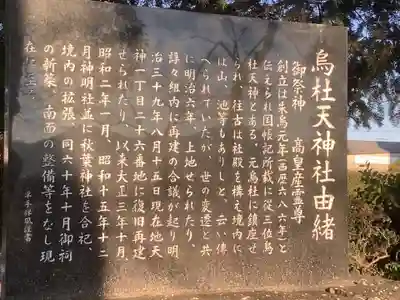 烏杜天神社由緒
御祭神 高皇産霊尊
創立は朱鳥元年(西六八六年)と
伝えられ国帳記所載に従三位烏
杜天神とある、元烏社に鎮座せ
られ、往古は社殿を構え境内に
は山、池等もありしと、云い傳
へられていたが、世の変遷と共
に明治六年、上地せられたり、
諄々組内に再建の合議が起り明
治三十九年八月十五日現在地天
神一丁目二十六番地に復旧再建
せられたり、以来大正三年十月、
昭和二年一月、昭和十五年十二
月神明社並に秋葉神社を合祀、
境内の拡張、同六十年十月御祠
の新築、南面の整備等をなし現
在に至る。